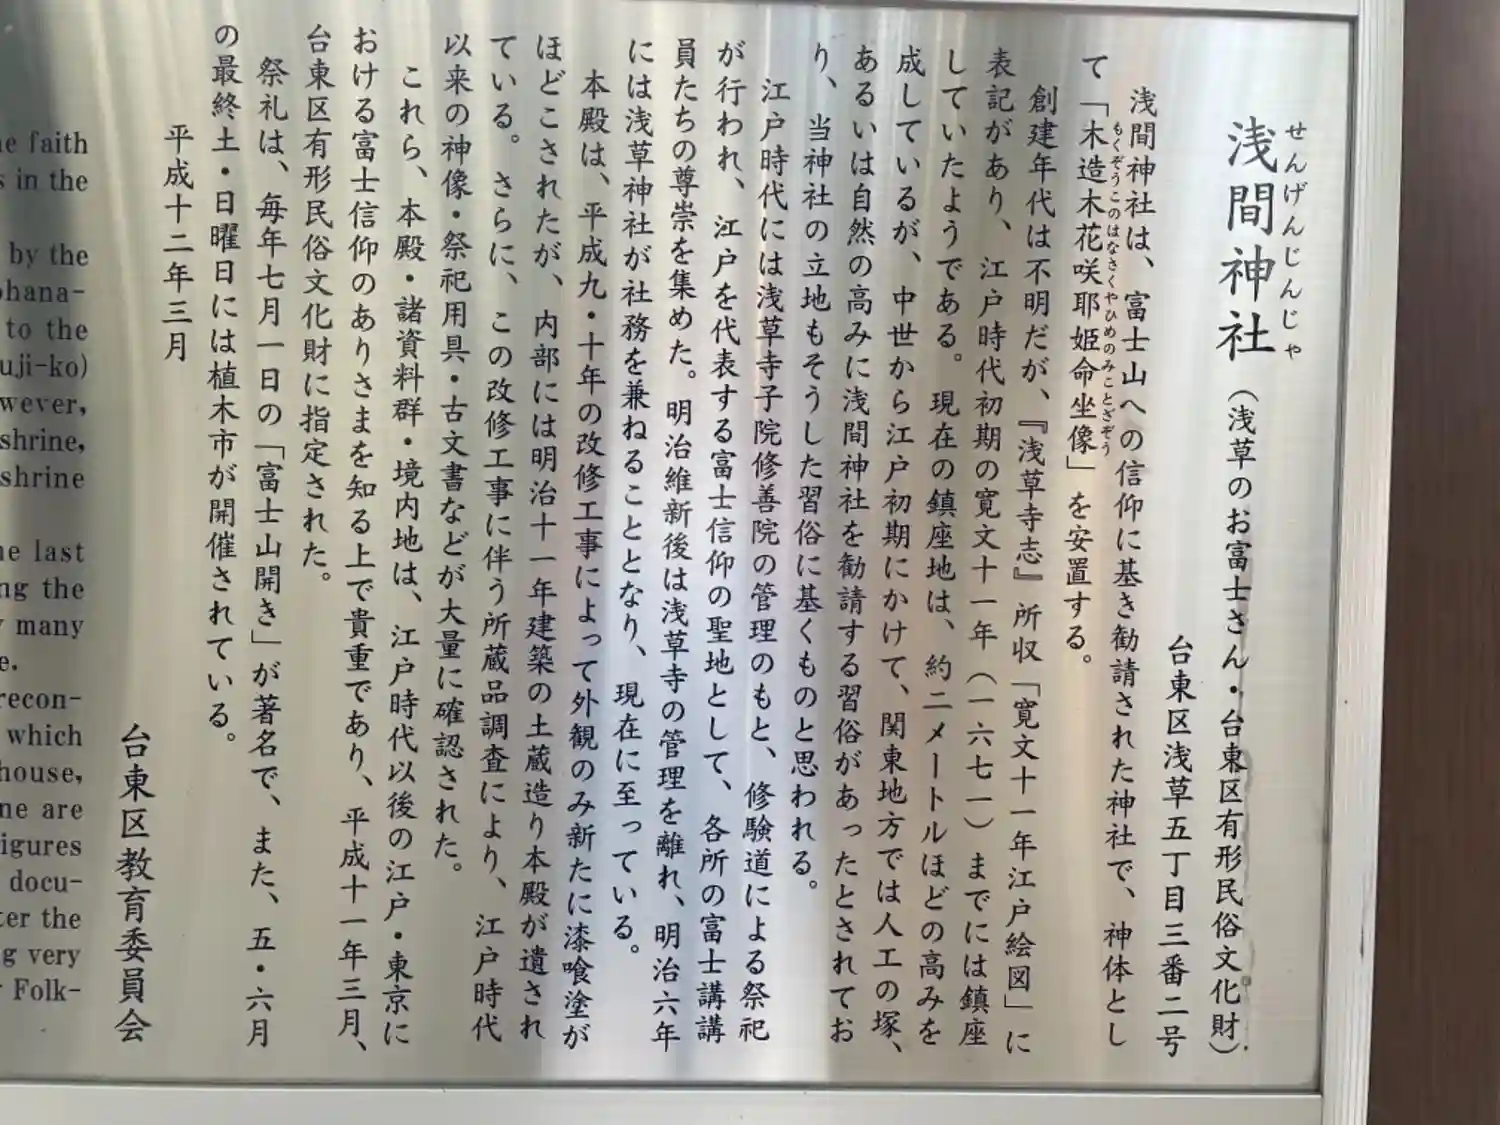 せんげんじんじゃ
浅間神社（浅草のお富士さん・台東区有形民俗文化財）
台東区浅草五丁目三番二号
浅間神社は、富士山への信仰に基き勧請された神社で、神体とし
もくぞうこのはなさくやひめのみことざぞう
て「木造木花咲耶姫命坐像」を安置する。
創建年代は不明だが、『浅草寺志』所収「寛文十一年江戸絵図」に
表記があり、江戸時代初期の寛文十一年（一六七一）までには鎮座
していたようである。現在の鎮座地は、約二メートルほどの高みを
成しているが、中世から江戸初期にかけて、関東地方では人工の塚、
あるいは自然の高みに浅間神社を勧請する習俗があったとされてお
り、当神社の立地もそうした習俗に基くものと思われる。
江戸時代には浅草寺子院修善院の管理のもと、修験道による祭祀
が行われ、江戸を代表する富士信仰の聖地として、各所の富士講講
員たちの尊崇を集めた。明治維新後は浅草寺の管理を離れ、明治六年
には浅草神社が社務を兼ねることとなり、現在に至っている。
本殿は、平成九・十年の改修工事によって外観のみ新たに漆喰塗が
ほどこされたが、内部には明治十一年建築の土蔵造り本殿が遺され
ている。さらに、この改修工事に伴う所蔵品調査により、江戸時代
以来の神像・祭祀用具・古文書などが大量に確認された。
これら、本殿・諸資料群・境内地は、江戸時代以後の江戸・東京に
おける富士信仰のありさまを知る上で貴重であり、平成十一年三月、
台東区有形民俗文化財に指定された。
祭礼は、毎年七月一日の「富士山開き」が著名で、また、五・六月
の最終土・日曜日には植木市が開催されている。
平成十二年三月
台東区教育委員会
faith
in the
by the
ohana-
to the
uji-ko)
wever,
shrine,
shrine
he last
ng the
many
e.
recon-
which
house,
ne are
igures
docu-
ter the
g very
Folk-